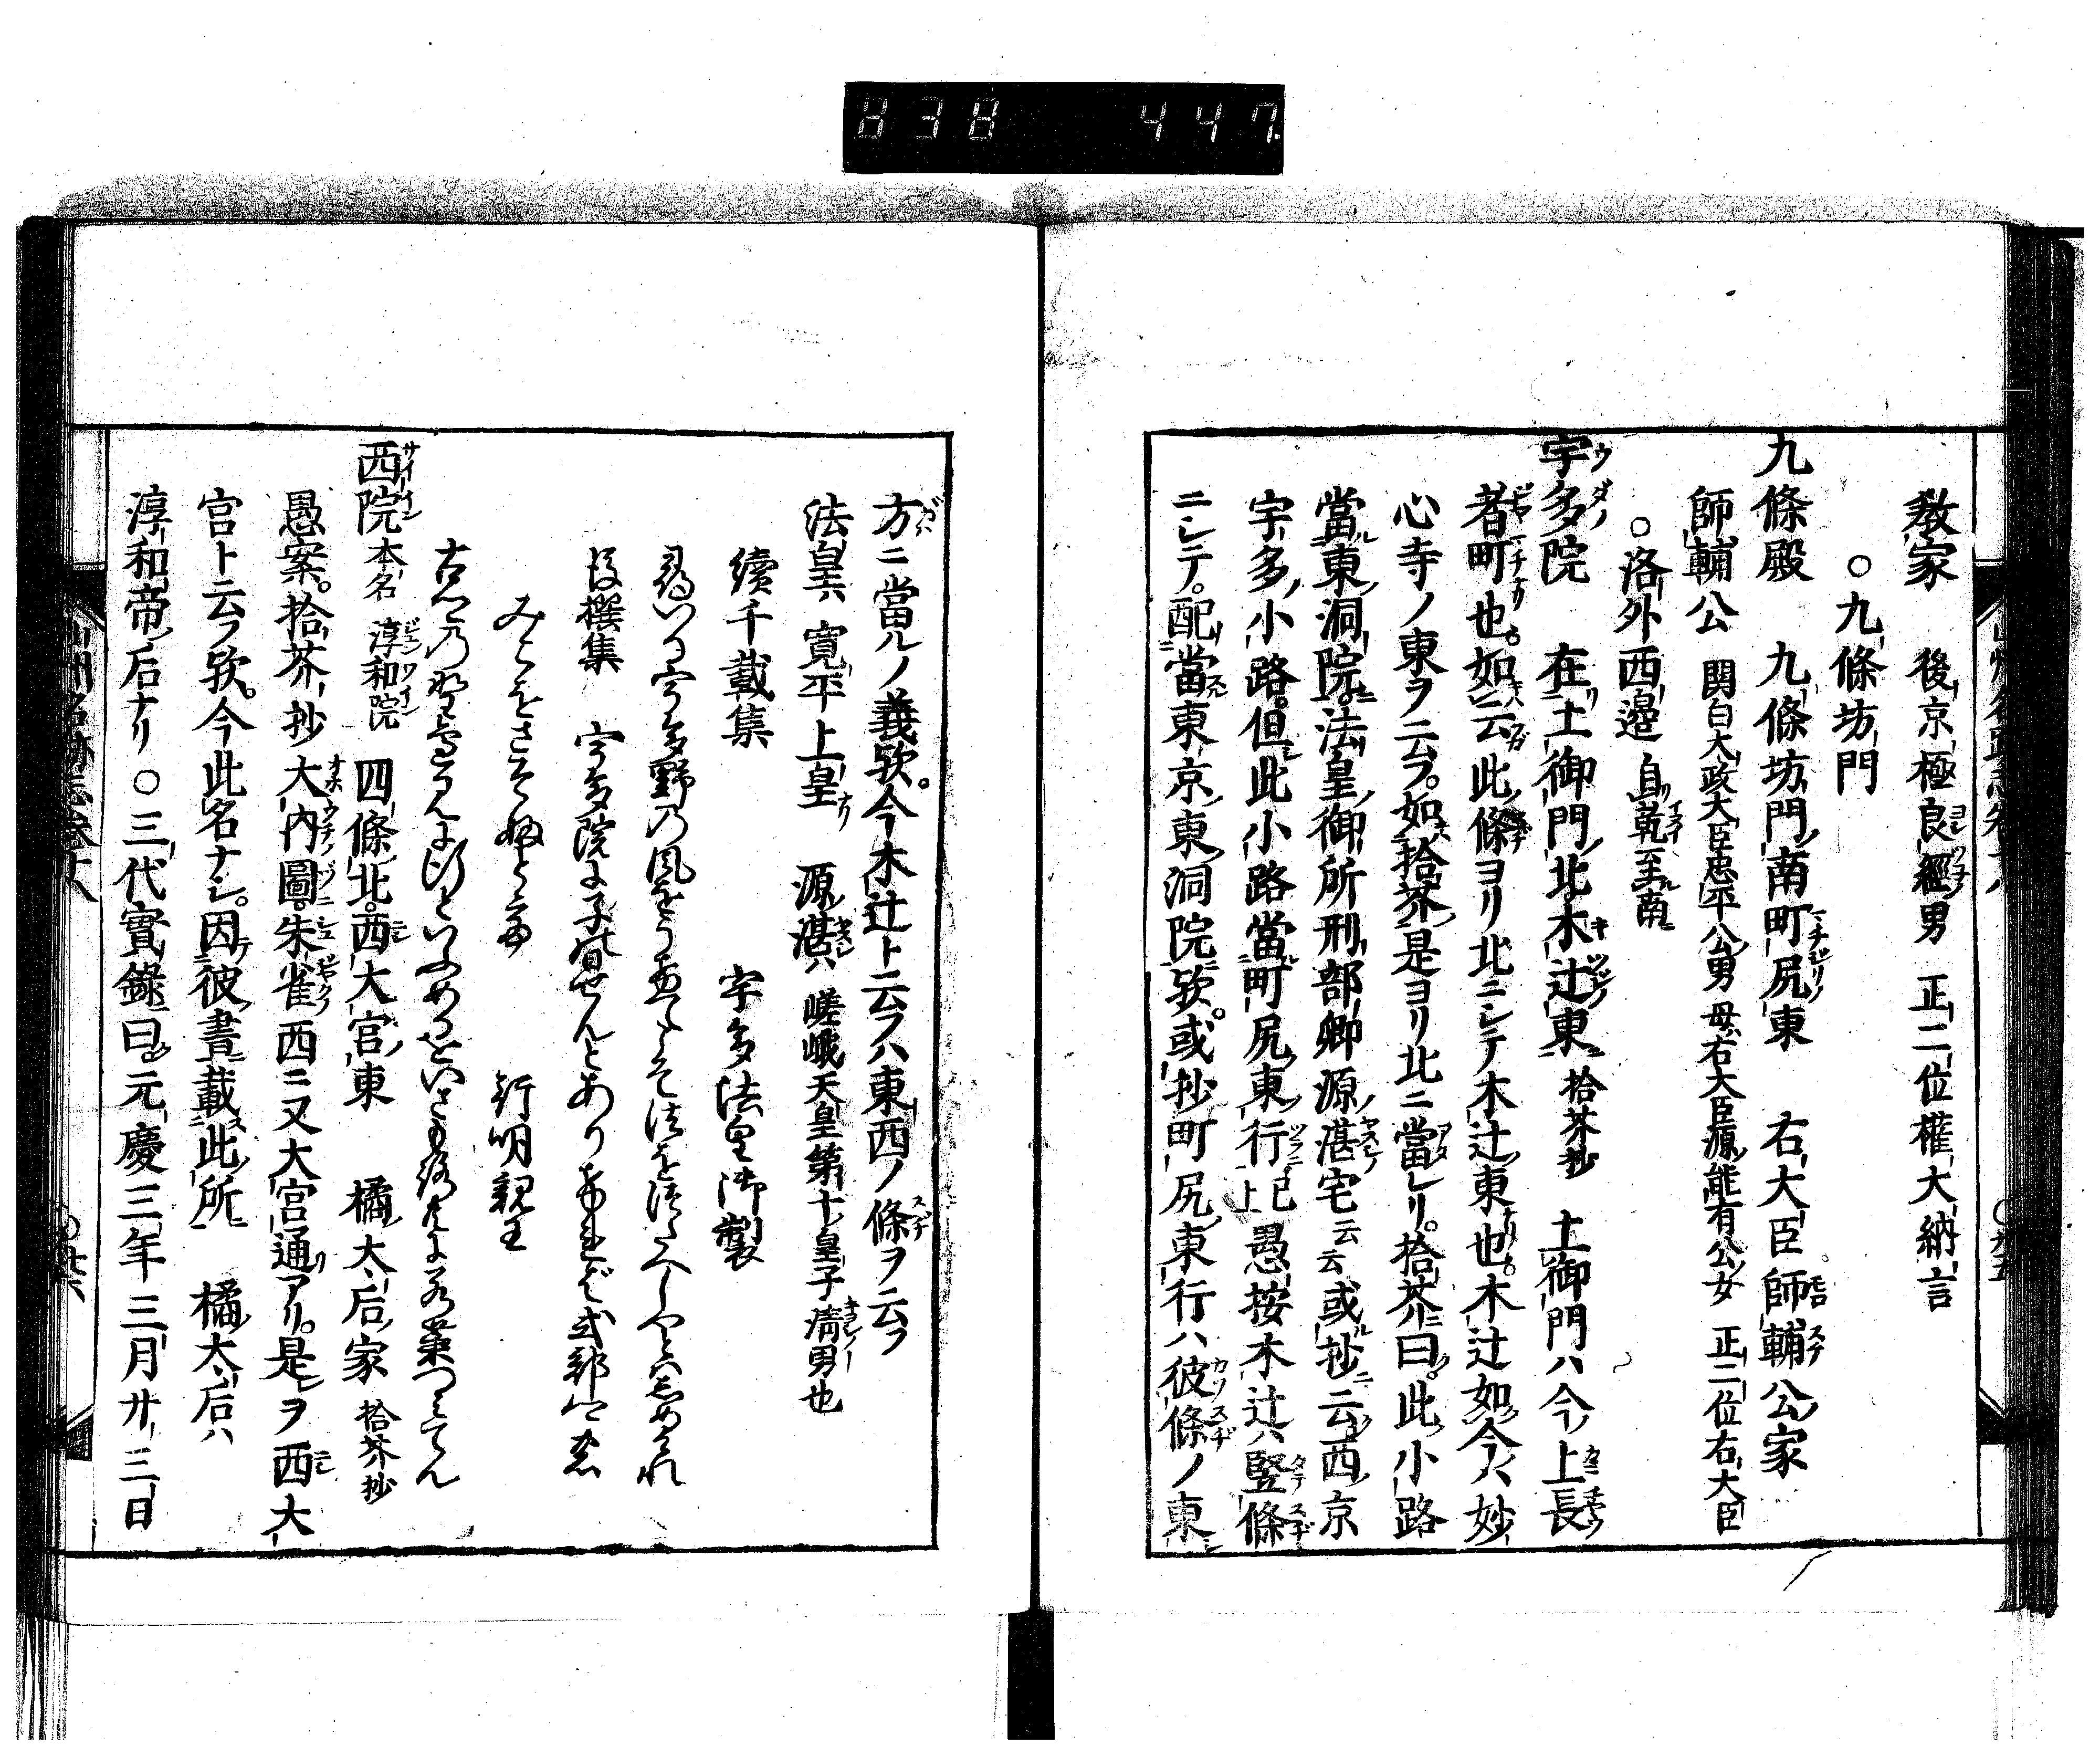 838 447
教家 後京極良經男 正二位權大納言
○九條坊門
九條殿 九條坊門南町尻東 右大臣師輔公家
師輔公 関白大政大臣忠平公男 母右大臣源能有公女 正二位右大臣
○洛外西邉 自乾至南
宇多院 在土御門北木辻東 拾芥抄 土御門ハ今ノ上長
者町也。如云此條ヨリ北ニシテ木辻東也。木辻如今ハ妙
心寺ノ東ヲ云フ。如拾芥是ヨリ北ニ當レリ。拾芥曰。此小路
當東洞院。法皇御所刑部卿源湛宅云云或抄ニ云西京
宇多小路。但此小路當町尻東行已上 愚按木辻ハ竪條
ニシテ。配當東京東洞院歟。或抄町尻東行ハ彼條ノ東
方ニ當ルノ義歟。今木辻ト云フハ東西ノ條ヲ云フ
法皇ハ寛平上皇 源湛ハ嵯峨天皇第十皇子淸男也
續千載集 宇多法皇御製
後撰集 宇多院に子日せんとありければ式部卿
みこをさそふとて 行明親王
西院 本名淳和院 四條北。西大宮東 橘大后家 拾芥抄
愚案。拾芥抄大内圖。朱雀西ニ又大宮通アリ。是ヲ西大
宮ト云フ歟。今此名ナシ。因彼書載此所 橘大后ハ
淳和帝后ナリ ○三代實錄曰元慶三年三月廿三日